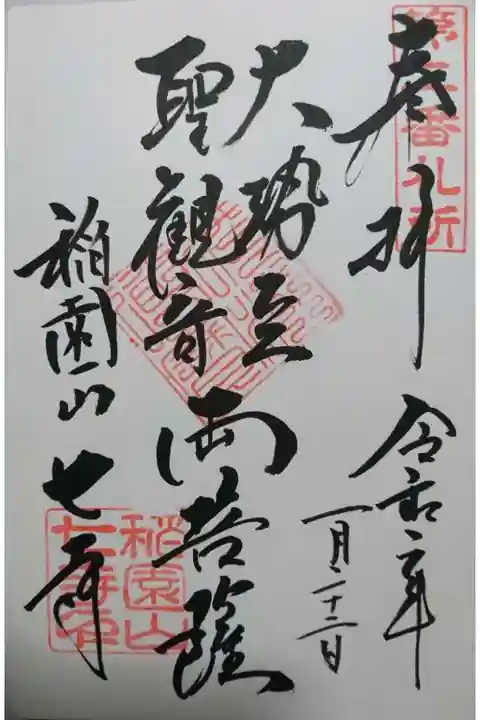 奉拝
令和二年
一月二十二日
大勢至
聖観音
両菩薩
稲園山 七寺
番札所
稲園山
七寺印